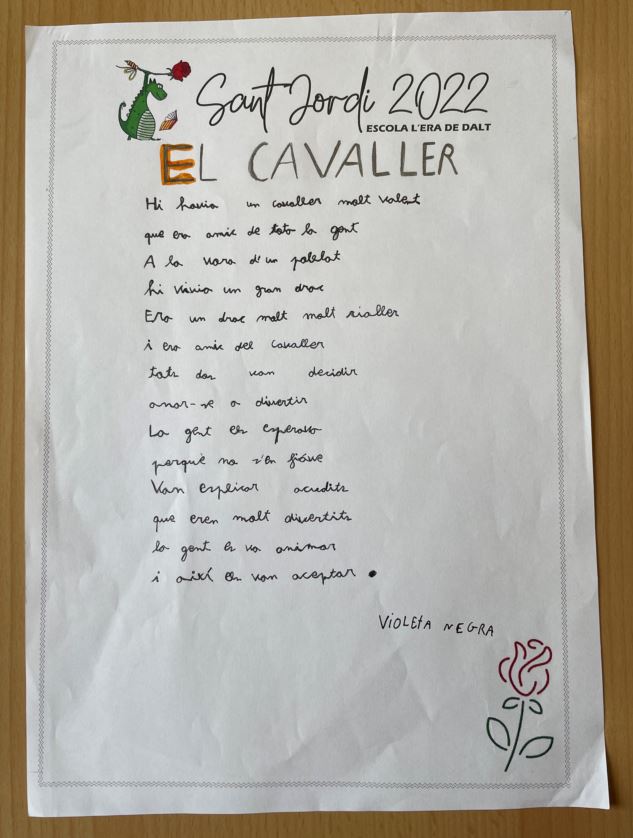 Sant Jordi 2022
ESCOLA L'ERA DE DALT
EL CAVALLER
Hi havia un cavaller molt valent
que era amic de tota la gent
A la vora d'un poblat
hi vivia un gran drac
Era un drac molt molt rialler
i era amic del cavaller
tots dos van decidir
anar-se a divertir
La gent es esperava
perquè no s'en fiave
Van explicar acudits
que eren molt divertits
la gent es va animar
i així es van aceptar.
VIOLETA NEGRA